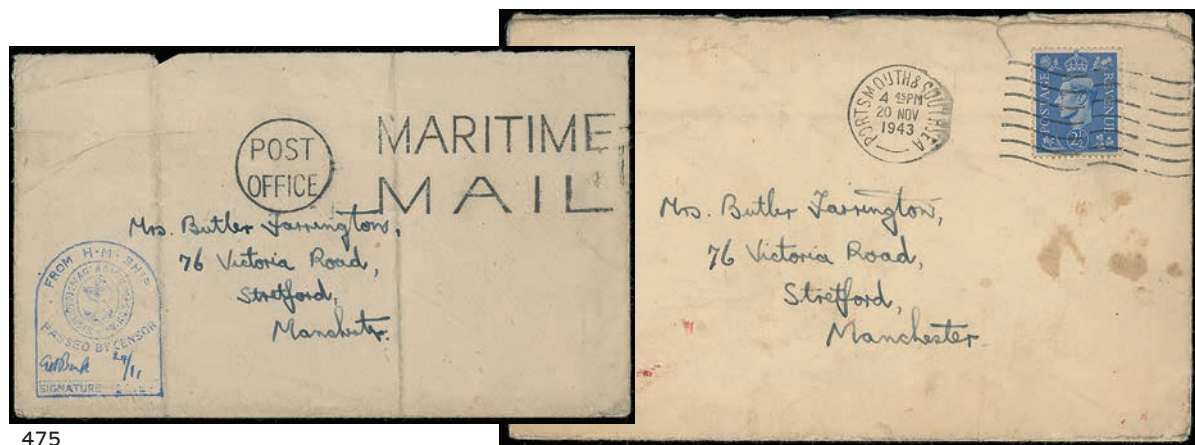 POST
OFFICE
MARITIME
MAIL
Mrs. Butler Farrington,
76 Victoria Road,
Stretford,
Manchester.
FROM H·M·SHIP
PASSED BY CENSOR
24/11
SIGNATURE
PORTSMOUTH & SOUTHSEA
4 45PM
20 NOV
1943
POSTAGE
REVENUE
2½D
Mrs. Butler Farrington,
76 Victoria Road,
Stretford,
Manchester.
475